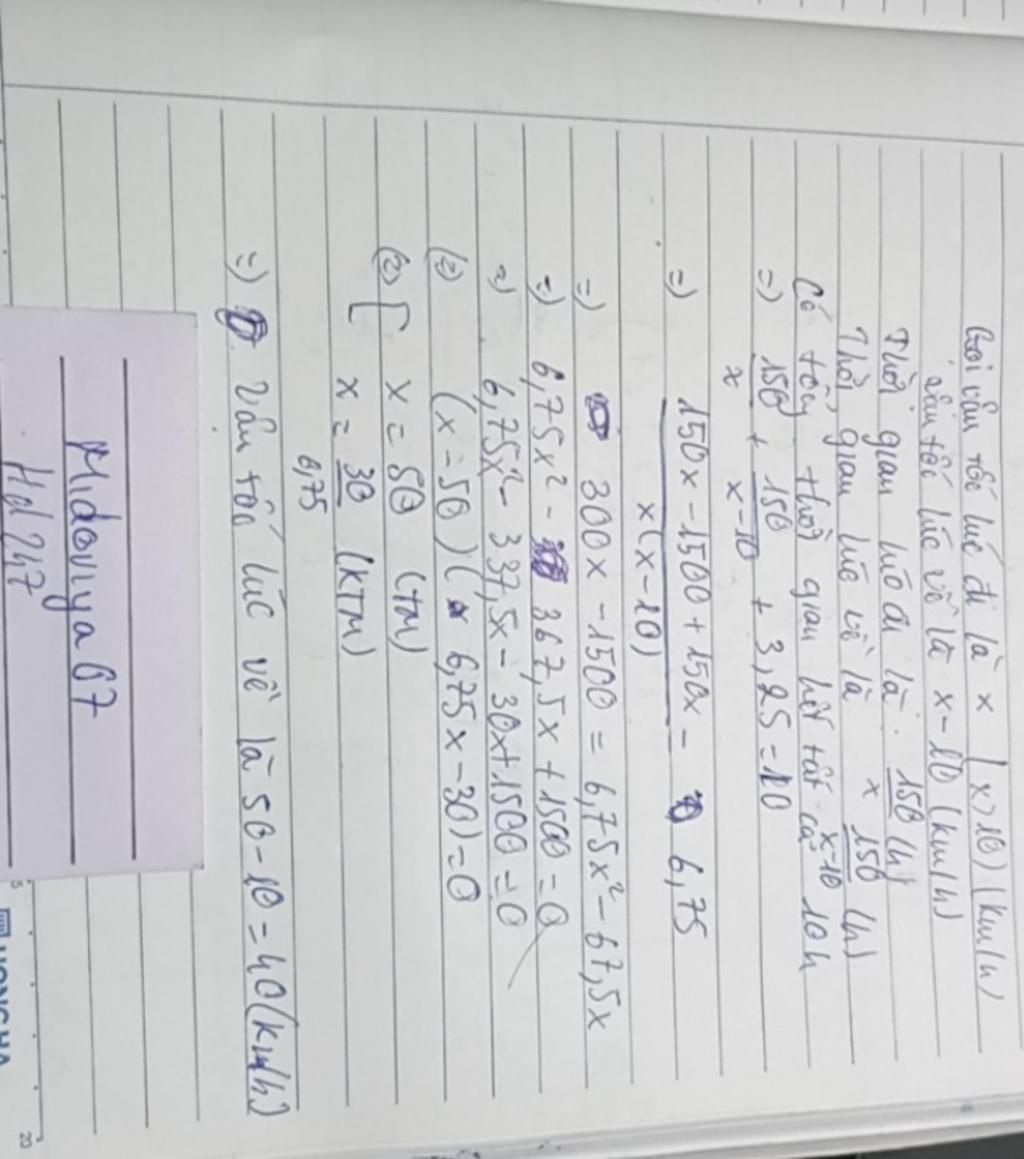 Gọi vận tốc lúc đi là x (x>10) (km/h)
vận tốc lúc về là x-10 (km/h)
Thời gian lúc đi là: 150/x (h)
Thời gian lúc về là 150/x-10 (h)
Có tổng thời gian hết tất cả 10h
=) 150/x + 150/x-10 + 3,25 = 10
=) 150x - 1500 + 150x/x(x-10) = 6,75
=) 300x - 1500 = 6,75x² - 67,5x
=) 6,75x² - 367,5x + 1500 = 0
=) 6,75x² - 337,5x - 30x + 1500 = 0
(=) (x - 50)(6,75x - 30) = 0
(=) [ x = 50 (TM)
x = 30/6,75 (KTM)
=) Vận tốc lúc về là 50-10 = 40 (km/h)
Midoviya07
Hd247
HONG HA
20